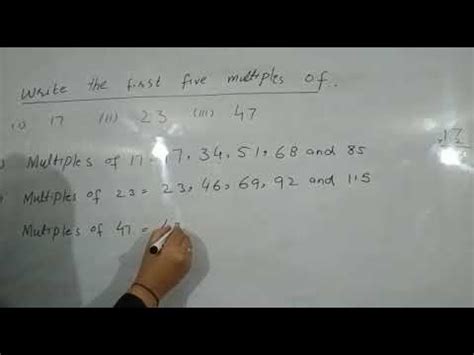 Write the first five multiples of.
(i) 17 (ii) 23 (iii) 47
Multiples of 17 = 17, 34, 51, 68 and 85
Multiples of 23 = 23, 46, 69, 92 and 115
Multiples of 47 =